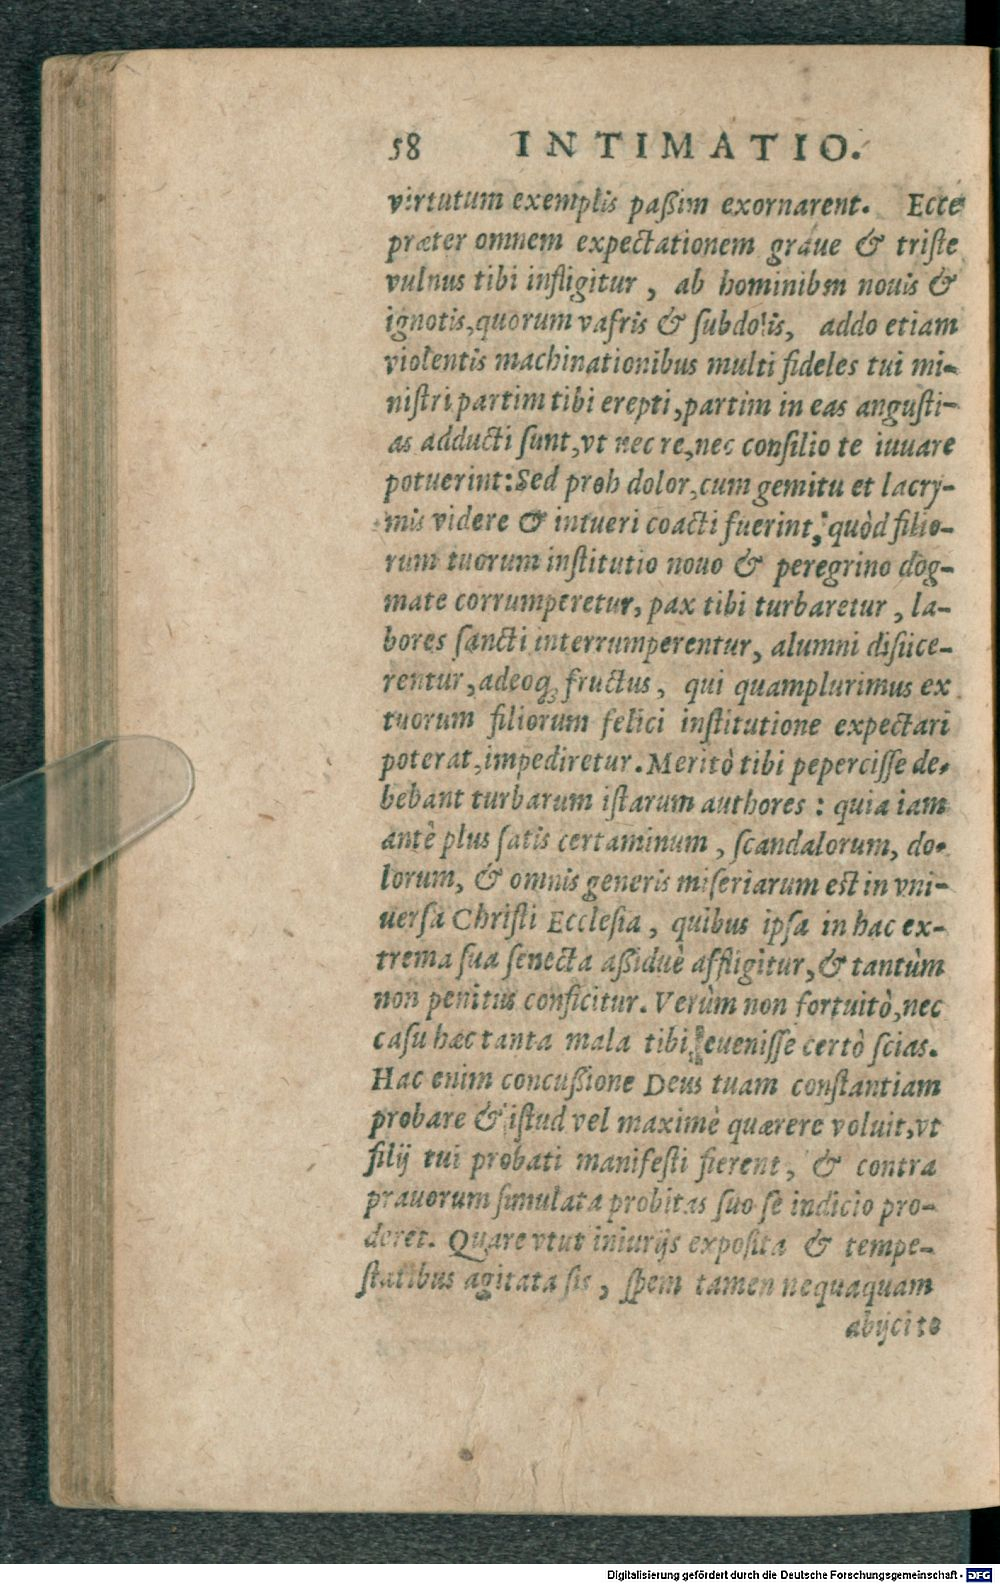 58 INTIMATIO.
virtutum exemplis paßim exornarent. Ecce
præter omnem expectationem graue & triſte
vulnus tibi infligitur, ab hominibus nouis &
ignotis, quorum vafris & ſubdolis, addo etiam
violentis machinationibus multi fideles tui mi-
niſtri partim tibi erepti, partim in eas anguſti-
as adducti ſunt, vt nec re, nec conſilio te iuuare
potuerint: Sed proh dolor, cum gemitu et lacry-
mis videre & intueri coacti fuerint, quòd filio-
rum tuorum inſtitutio nouo & peregrino dog-
mate corrumperetur, pax tibi turbaretur, la-
bores ſancti interrumperentur, alumni disiice-
rentur, adeoq; fructus, qui quamplurimus ex
tuorum filiorum felici inſtitutione expectari
poterat, impediretur. Meritò tibi peperciſſe de-
bebant turbarum iſtarum authores: quia iam
antè plus ſatis certaminum, ſcandalorum, do-
lorum, & omnis generis miſeriarum est in vni-
uerſa Chriſti Eccleſia, quibus ipſa in hac ex-
trema ſua ſenecta aßiduè affligitur, & tantùm
non penitus conficitur. Verùm non fortuitò, nec
caſu hæc tanta mala tibi eueniſſe certò ſcias.
Hac enim concußione Deus tuam conſtantiam
probare & iſtud vel maximè quærere voluit, vt
filij tui probati manifeſti fierent, & contra
prauorum ſimulata probitas ſuo ſe indicio pro-
deret. Quare vtut iniurijs expoſita & tempe-
ſtatibus agitata ſis, ſpem tamen nequaquam
abijcito
Digitalisierung gefördert durch die Deutsche Forschungsgemeinschaft - DFG